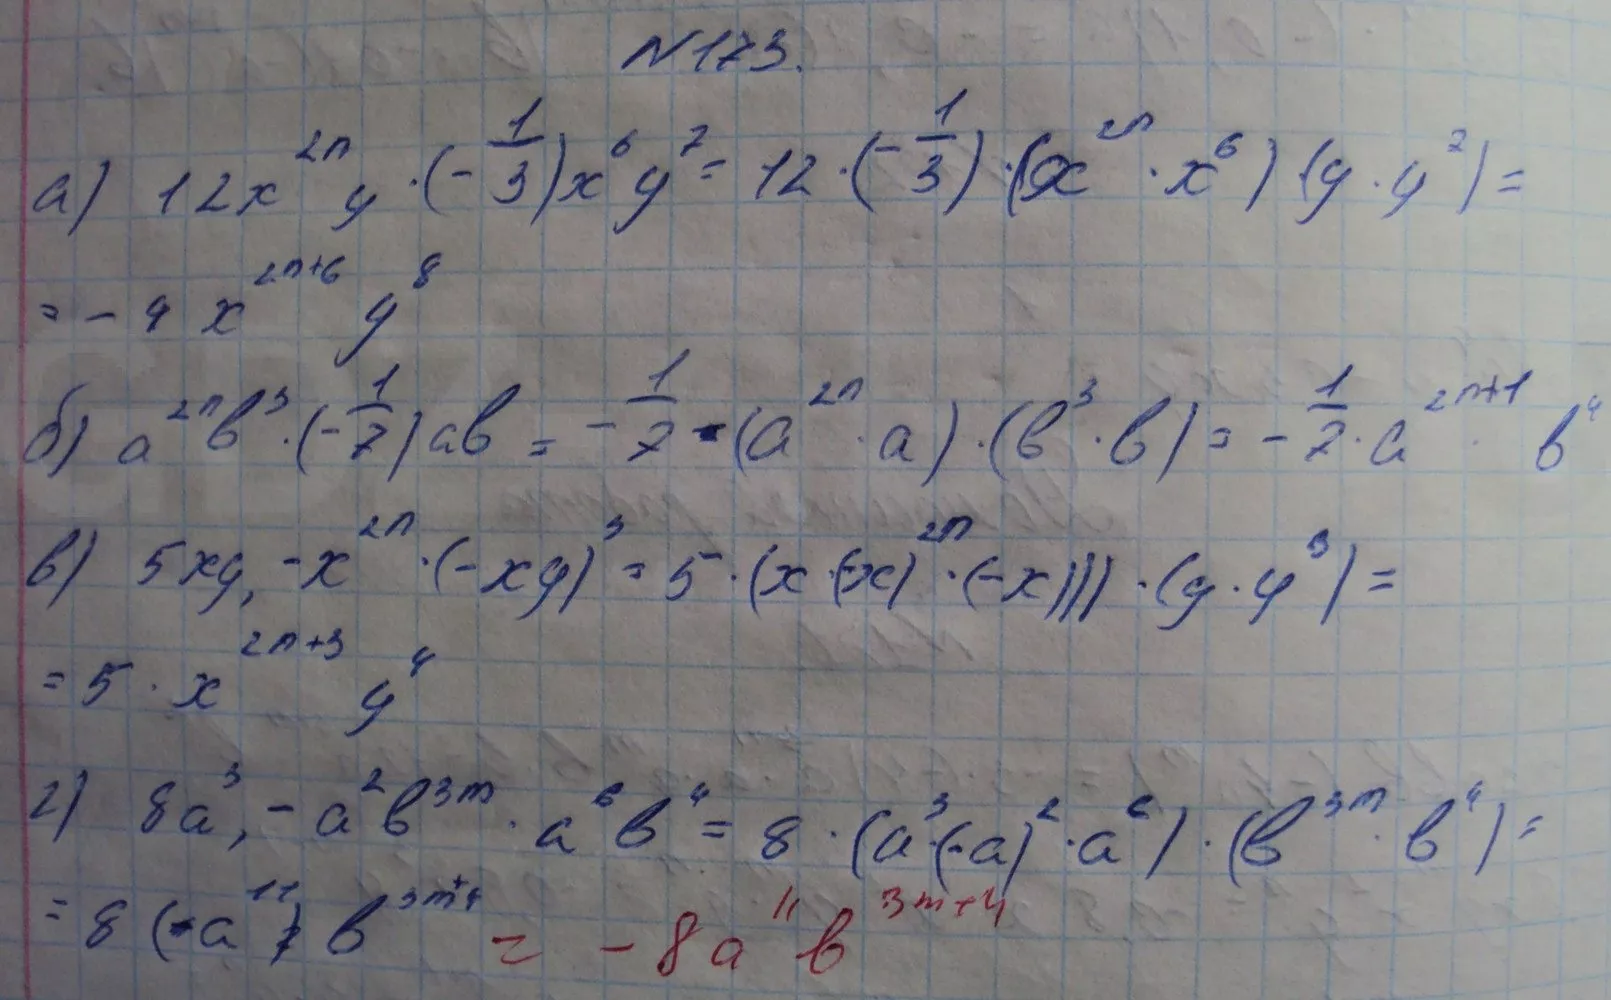 N 173.
а) 12x^{2n}y · (-1/3)x^6y^7 = 12 · (-1/3) · (x^{2n} · x^6) · (y · y^7) =
= -4 x^{2n+6} y^8
б) a^{2n}b^3 · (-1/7)ab = -1/7 · (a^{2n} · a) · (b^3 · b) = -1/7 · a^{2n+1} · b^4
в) 5xy, -x^{2n} · (-xy)^3 = 5 · (x · (-x)^{2n} · (-x))) · (y · y^3) =
= 5 · x^{2n+3} y^4
г) 8a^3, -a^2b^{3m} · a^6b^4 = 8 · (a^3 · (-a)^2 · a^6) · (b^{3m} · b^4) =
= 8 (-a^{11}) b^{3m+4} = -8a^{11}b^{3m+4}